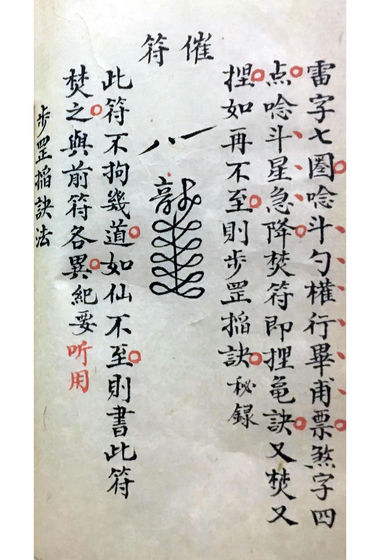 雷字七圏唸斗勺權行畢甫票煞字四
点唸斗星急降焚符即揑龟訣又焚又
揑如再不至則步罡搯訣秘録
催符
此符不拘幾道如仙不至則書此符
焚之與前符各異紀要听用
步罡搯訣法